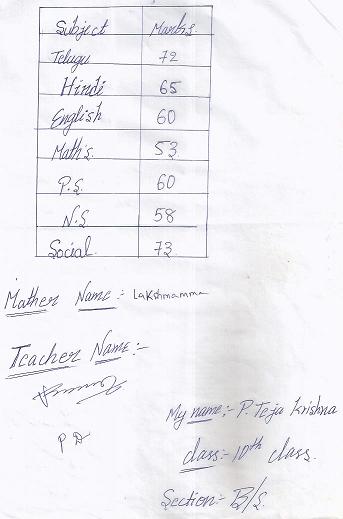 Subject Marks
Telugu 72
Hindi 65
English 60
Math's. 53
P.S. 60
N.S 58
Social. 73
Mather Name :- Lakshmamma
Teacher Name:-
P D
My name:- P. Teja Krishna
class:- 10th class.
Section:- B/S.